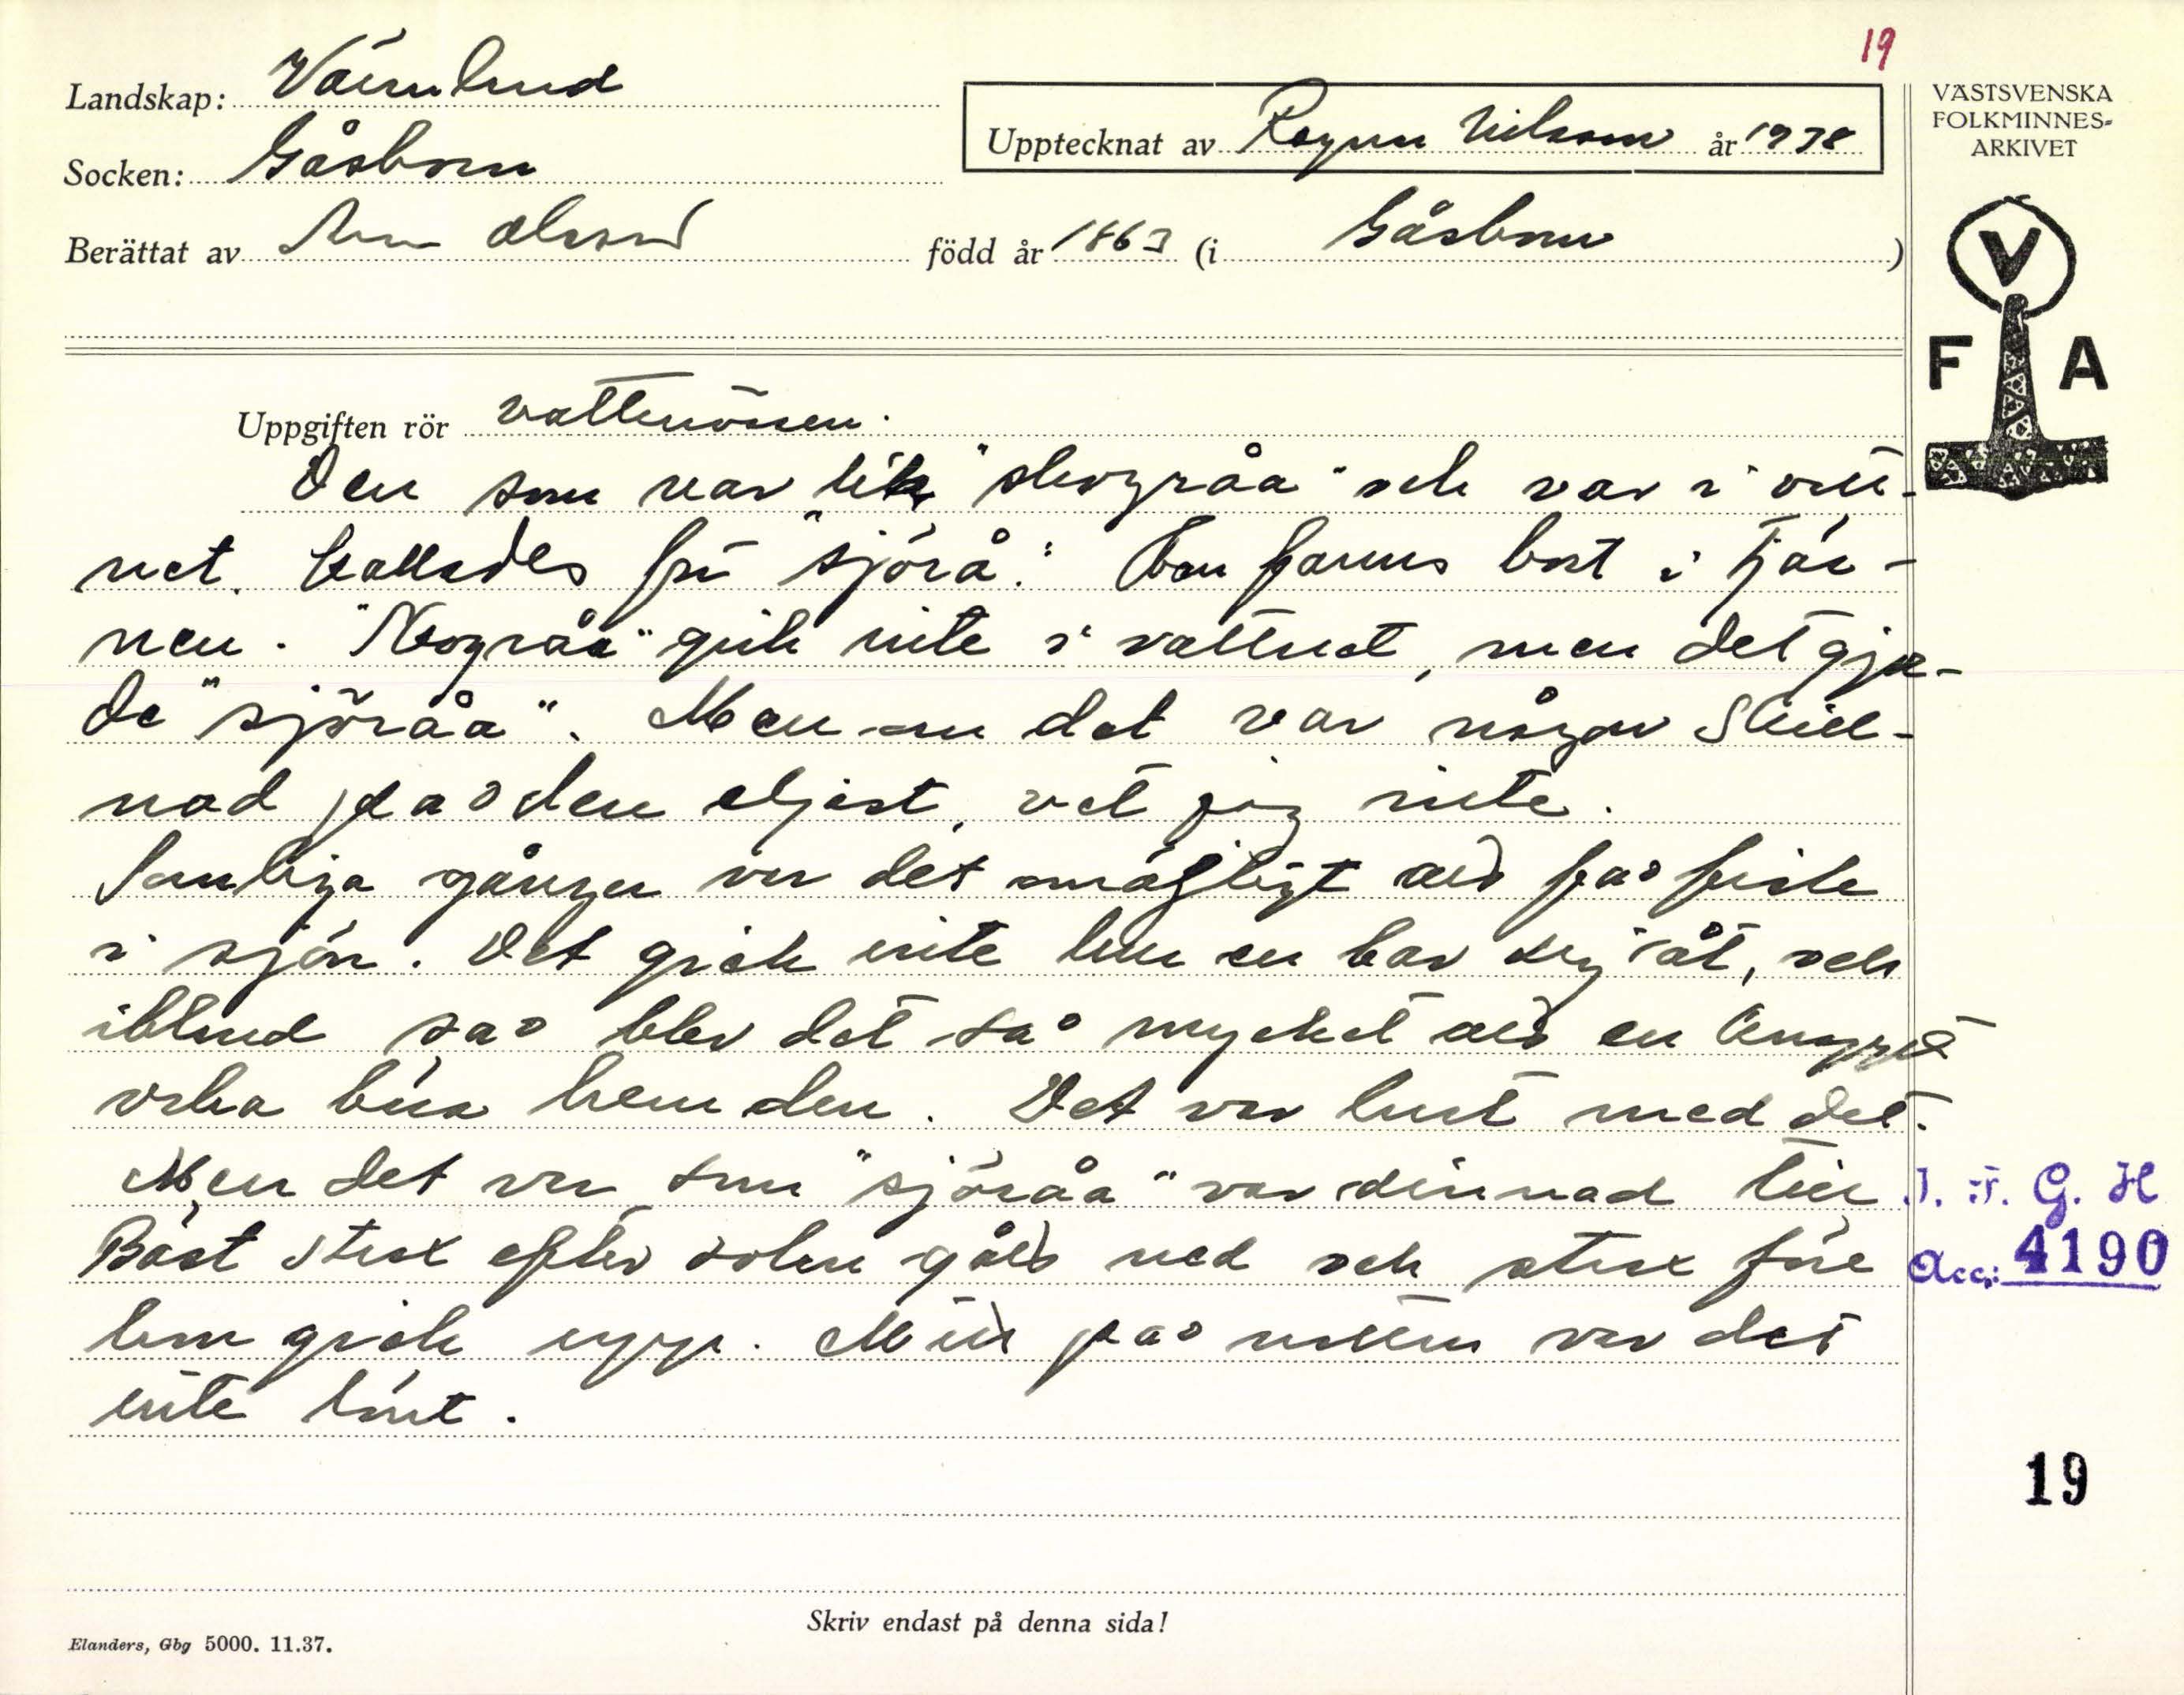 19
Landskap: Värmland
Upptecknat av Ragnar Nilsson år 1938
VÄSTSVENSKA
FOLKMINNES-
ARKIVET
Socken: Gåsborn
Berättat av Olsson född år 1863 (i Gåsborn)
V
F A
Uppgiften rör vattenväsen.
Den som var lik "skogråa" och var i vatt-
net kallades för "sjörå". Den fanns bort i Tjär-
nen. "Skogråa" gick inte i vattnet, men det gjor-
de "sjöråa". Men om det var någon skill-
nad på den eljest, vet jag inte.
Somliga gånger var det omöjligt att få fisk
i sjön. Det gick inte hur en bar sej åt, och
ibland så blev det så mycket att en knappt
orka bära hem den. Det var konst med det.
Men det var som "sjöråa" var därnad till.
Bäst strax efter solen gått ned och strax före
hon gick upp. Mitt på natten var det
inte lönt.
I. F. G. H
Acc: 4190
19
Skriv endast på denna sida!
Elanders, Gbg 5000. 11.37.